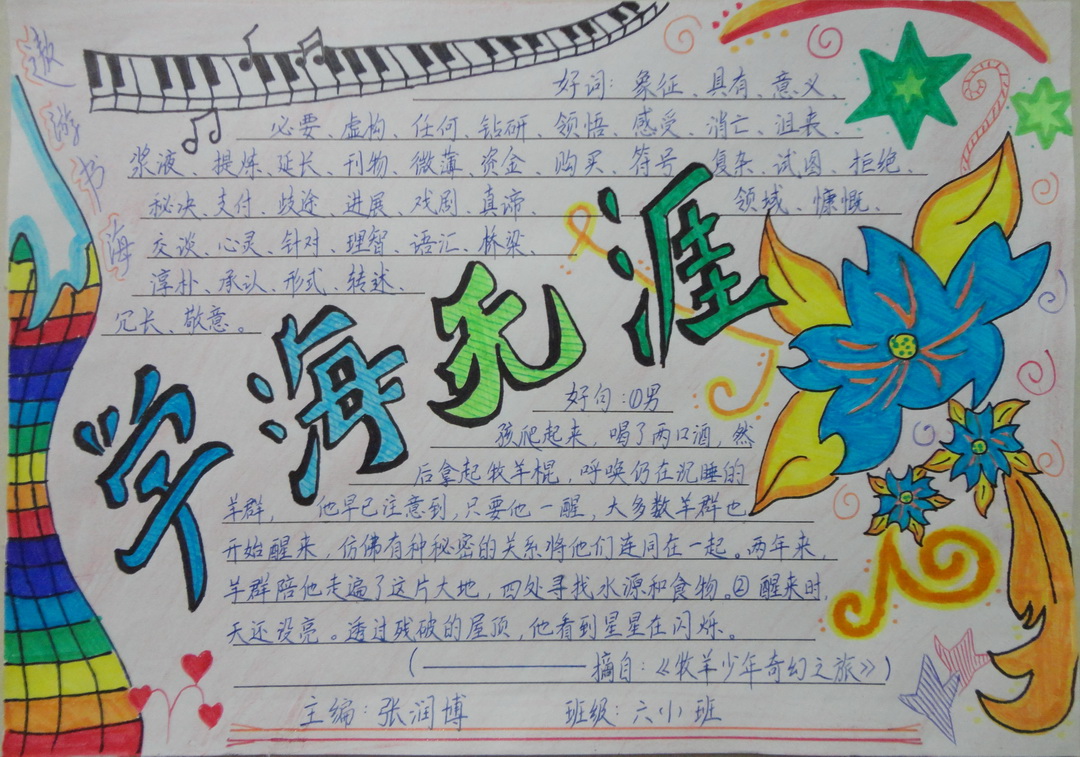 遨游书海
好词：象征、具有、意义、
必要、虚构、任何、钻研、领悟、感受、消亡、沮丧、
浆液、提炼、延长、刊物、微薄、资金、购买、符号、复杂、试图、拒绝、
秘决、支付、歧途、进展、戏剧、真谛、领域、慷慨、
交谈、心灵、针对、理智、语汇、桥梁、
淳朴、承认、形式、转述、
冗长、敬意。
学海无涯
好句：①男
孩爬起来，喝了两口酒，然
后拿起牧羊棍，呼唤仍在沉睡的
羊群， 他早已注意到，只要他一醒，大多数羊群也
开始醒来，仿佛有种秘密的关系将他们连同在一起。两年来，
羊群陪他走遍了这片大地，四处寻找水源和食物。②醒来时，
天还没亮。透过残破的屋顶，他看到星星在闪烁。
（——————摘自：《牧羊少年奇幻之旅》）
主编：张润博 班级：六（小）班